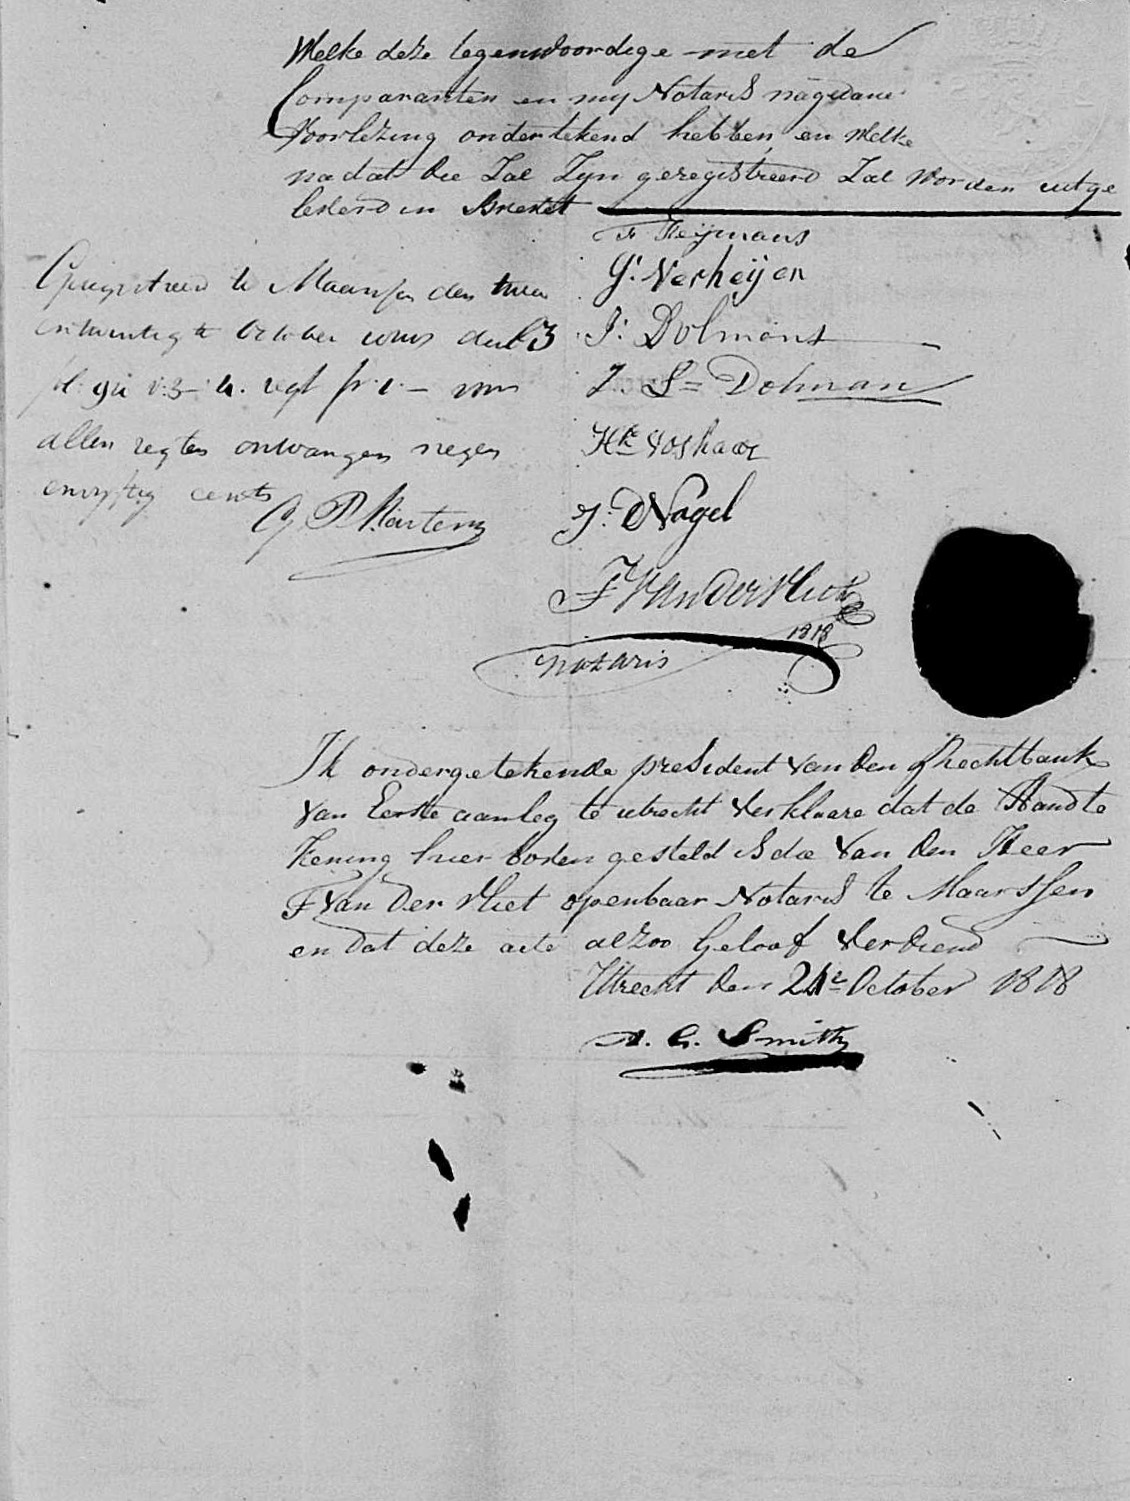 Welke deze tegenwoordige met de
Comparanten en my Notaris nagedane
Voorlezing ondertekend hebben, en Welke
nadat die Zal Zyn geregistreerd Zal Worden uitge
leverd in Brevet
F Heijmans
G: Verheijen
J: Dolmans
J. S= Dolman
Hk Voshaar
J: Nagel
F Van der Vliet
1818
Notaris
Geregistreerd te Maarssen den twee
entwintigste October deel 3
vo. 3 - 4. regt fr: 1. -
allen regten ontvangen negen
envyftig cents
G P Martens
Ik ondergetekende president van den Rechtbank
van Eerste aanleg te utrecht Verklaare dat de Handte
kening hier boven gesteld is die Van den Heer
F Van Der Vliet openbaar Notaris te Maarssen
en dat deze acte alzoo Geloof Verdiend
Utrecht den 24e October 1818
A. G. Smith